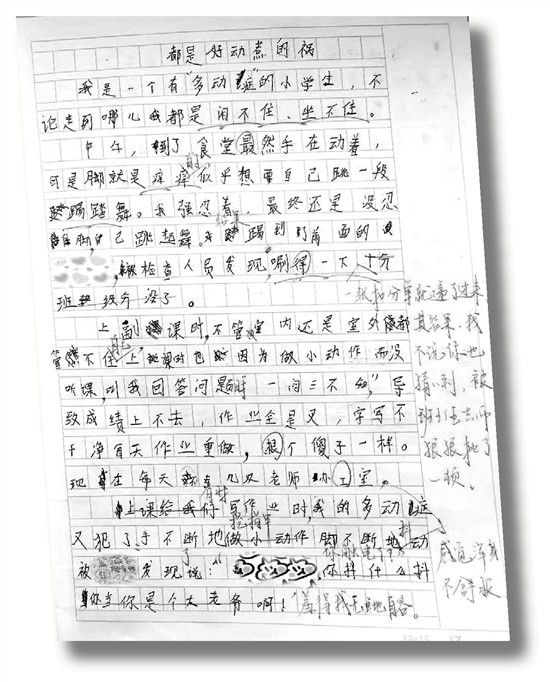 都是好动惹的祸
我是一个有“多动症”的小学生，不
论走到哪儿我都是闲不住、坐不住。
中午，到了食堂虽然手在动着，
可是脚就是痒痒似乎想要自己跳一段
踢踏舞。我强忍着，最终还是没忍
住脚自己跳起舞。踢到了前面的
被检查人员发现，唰得一下十分
班级分没了。
一张扣分单就递了过来
其结果，我
不说你也
猜得到，被
班主任老师
狠狠批了
一顿。
上副课时，不管室内还是室外都
管不住自己上课时也因为做小动作而没
听课，叫我回答问题时“一问三不知”，导
致成绩上不去，作业全是叉，字写不
干净每天作业重做，跟个傻子一样。
现在每天几次老师办公室。
上课给我们写作业时，我的多动症
又犯了手不断地做小动作脚不断地抖动
被发现了说：“你抖什么抖
你当你是个大老爷啊！”羞得我无地自容。
感觉浑身
不舒服